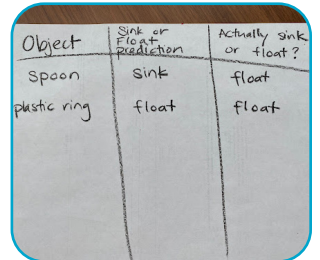 Object
Sink or
Float
prediction
Actually sink
or float?
spoon sink float
plastic ring float float